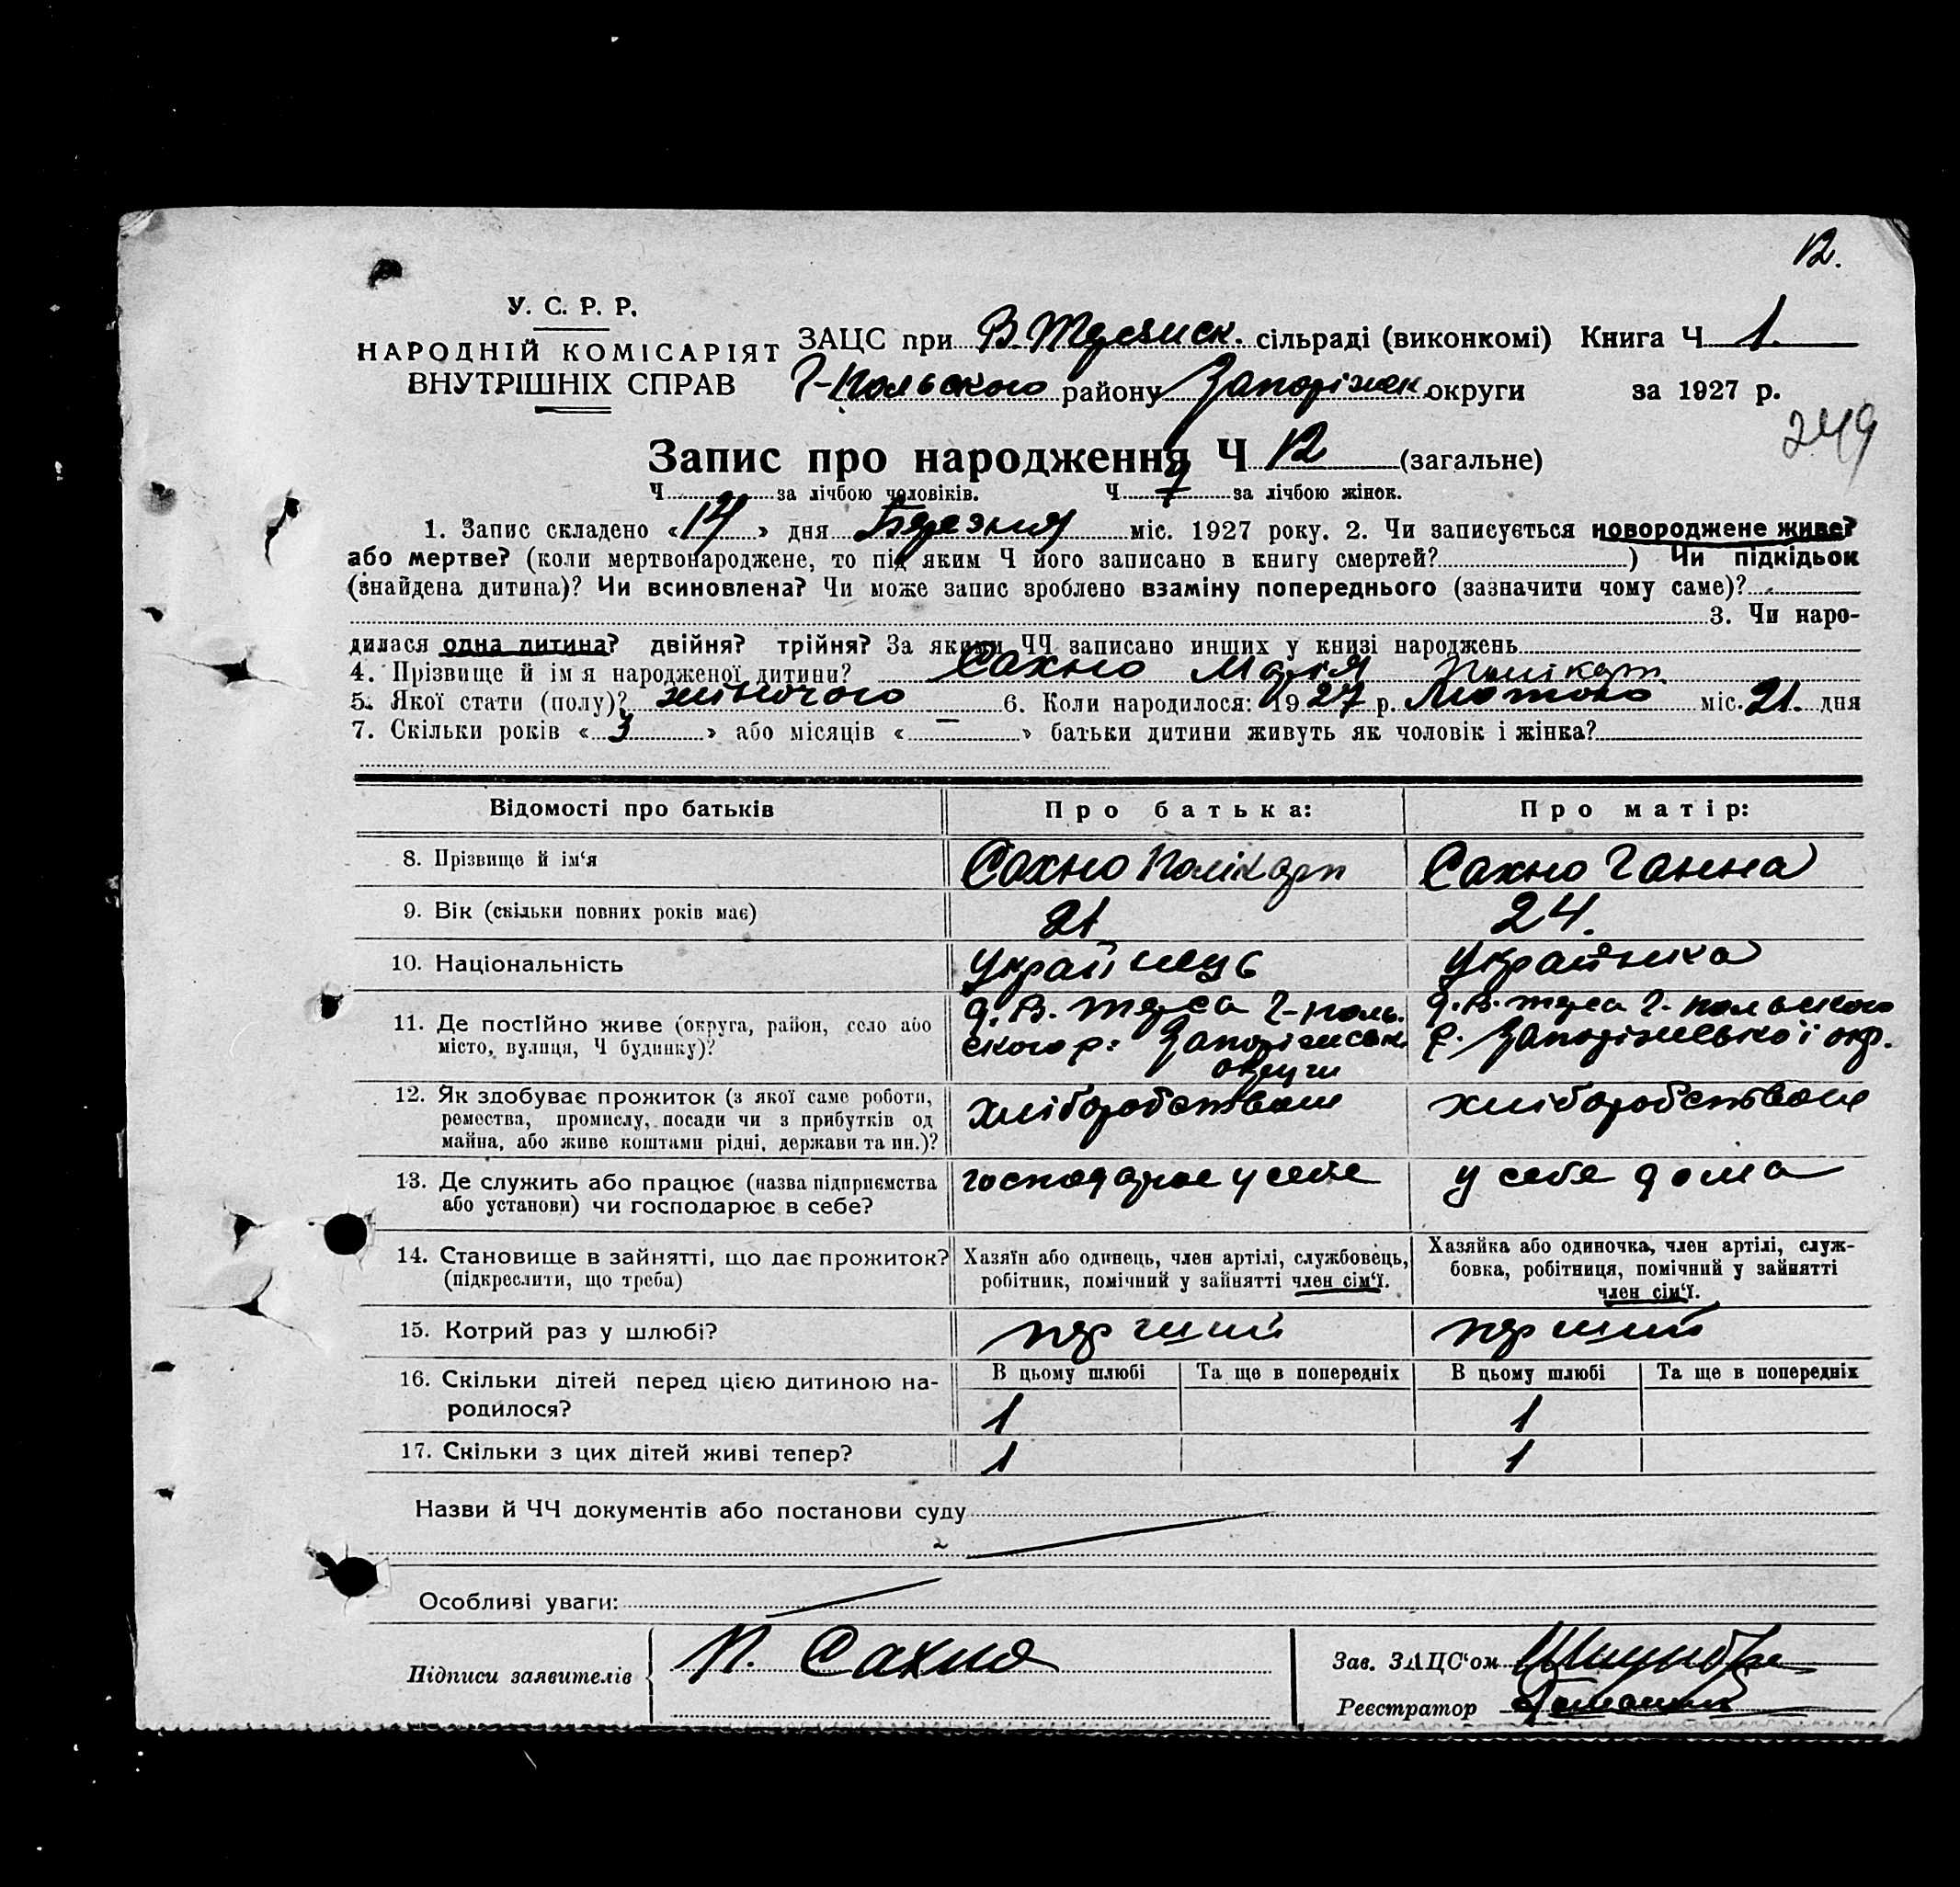 12.
У. С. Р. Р.
НАРОДНІЙ КОМІСАРІЯТ
ВНУТРІШНІХ СПРАВ
ЗАЦС при В. Терсиск. сільраді (виконкомі) Книга Ч 1.
Г-Польского району Запоріжск округи за 1927 р.
249
Запис про народження Ч 12 (загальне)
Ч за лічбою чоловіків. Ч 7 за лічбою жінок.
1. Запис складено «14» дня Березня міс. 1927 року. 2. Чи записується новороджене живе?
або мертве? (коли мертвонароджене, то під яким Ч його записано в книгу смертей? ) Чи підкідьок
(знайдена дитина)? Чи всиновлена? Чи може запис зроблено взаміну попереднього (зазначити чому саме)?
3. Чи наро-
дилася одна дитина? двійня? трійня? За якими ЧЧ записано инших у книзі народжень
4. Прізвище й ім я народженої дитини? Сахно Марія Полікарп.
5. Якої стати (полу)? жіночого 6. Коли народилося: 1927 р. Лютого міс. 21. дня
7. Скільки років «3» або місяців «—» батьки дитини живуть як чоловік і жінка?
Відомості про батьків Про батька: Про матір:
8. Прізвище й ім‘я Сахно Полікарп Сахно Ганна
9. Вік (скільки повних років має) 21 24.
10. Національність Украінець Украінка
11. Де постійно живе (округа, район, село або
місто, вулиця, Ч будинку)?
с. В. терса Г-поль.
ского р: Запоріжськ.
округи
с. В. терса Г. польского
р. Запоріжської окр.
12. Як здобуває прожиток (з якої саме роботи,
ремества, промислу, посади чи з прибутків од
майна, або живе коштами рідні, держави та ин.)?
хліборобством хліборобством
13. Де служить або працює (назва підприємства
або установи) чи господарює в себе?
господарює у себе у себя дома
14. Становище в зайнятті, що дає прожиток?
(підкреслити, що треба)
Хазяїн або одинець, член артілі, службовець,
робітник, помічний у зайнятті член сім‘ї.
Хазяйка або одиночка, член артілі, служ-
бовка, робітниця, помічний у зайнятті
член сім‘ї.
15. Котрий раз у шлюбі? перший перший
16. Скільки дітей перед цією дитиною на-
родилося?
В цьому шлюбі Та ще в попередніх В цьому шлюбі Та ще в попередніх
1 1
17. Скільки з цих дітей живі тепер? 1 1
Назви й ЧЧ документів або постанови суду
Особливі уваги:
Підписи заявителів П. Сахно
Зав. ЗАЦС‘ом
Реєстратор